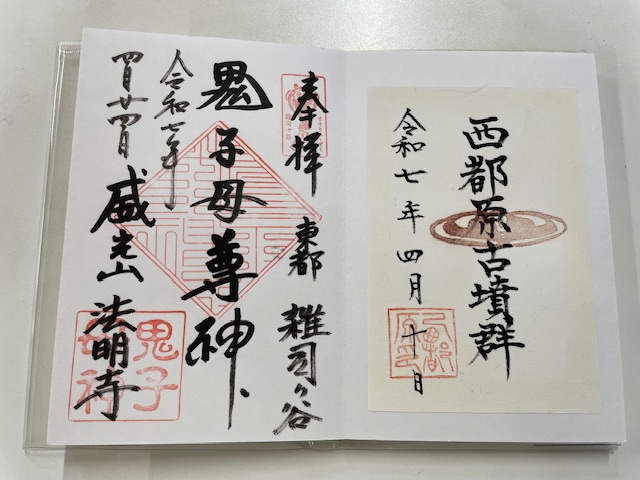 西都原古墳群
令和七年四月十日
奉拝 東都 雑司ヶ谷
鬼子母尊神
令和七年
四月廿四日
威光山 法明寺
鬼子
母神